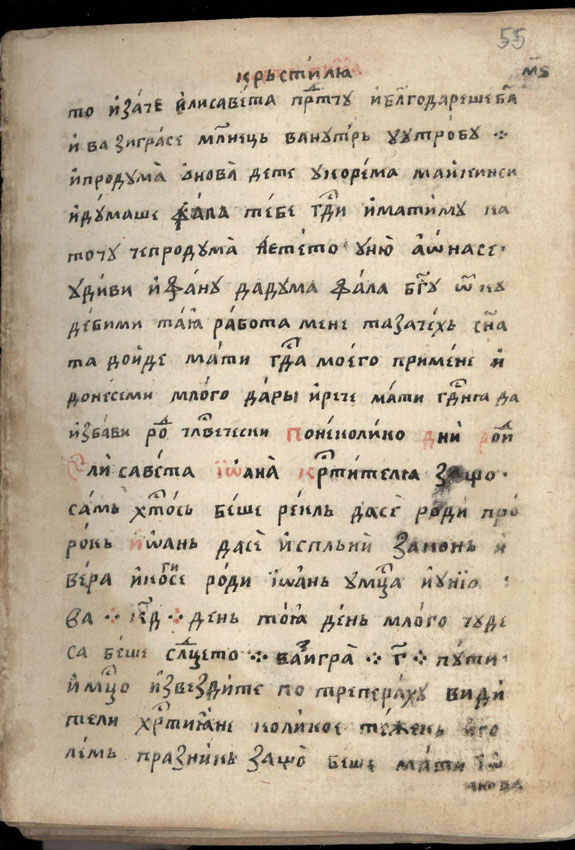 55
крьстилю
м҃ѕ
то и҆заче и҆лисавета прⷣтчу и҆ бл҃годареше б҃а
и҆ ва зиграсе мл҃нець ванутрь у утробу ⁘
и҆ продума ѻ҆нова дете у корема маикинси
и҆ думаше фала тебе гд҃и и҆ матиму ка
точу че продума детето у нѥ а҆ѡнасе ·
удиви и҆ фану да дума фала бг҃у ѿ ку
де би ми таѧ работа мене та зачехь сн҃а
та доиде мати гд҃а моего при мене и҆
донесе ми млого дары и҆ рече мати гд҃нѧ да
и҆збави роⷣ чл҃вечески По неколико дни роди
Елисавета І҆ѡана кр҃тителѧ защо ·
самь хр҃тось беше рекль дасе роди про
рокь И҆ѡань дасе и҆спльни законь и҆
вера и҆ когиⷭ роди і҆ѡань у мц҃а и҆унїѡ :
ва ⁘ к҃д ⁘ день тоѧ день млого чуде
са беше сл҃цето ⁘ ваꙁигра ⁘ г҃ ⁘ пути
и҆ мц҃о и҆ звездите по треперᲂху види
тели хр҃тиѧне колико е҆ тежень и҆ го
лемь празникь защо беше мати і҆ѡ
анова